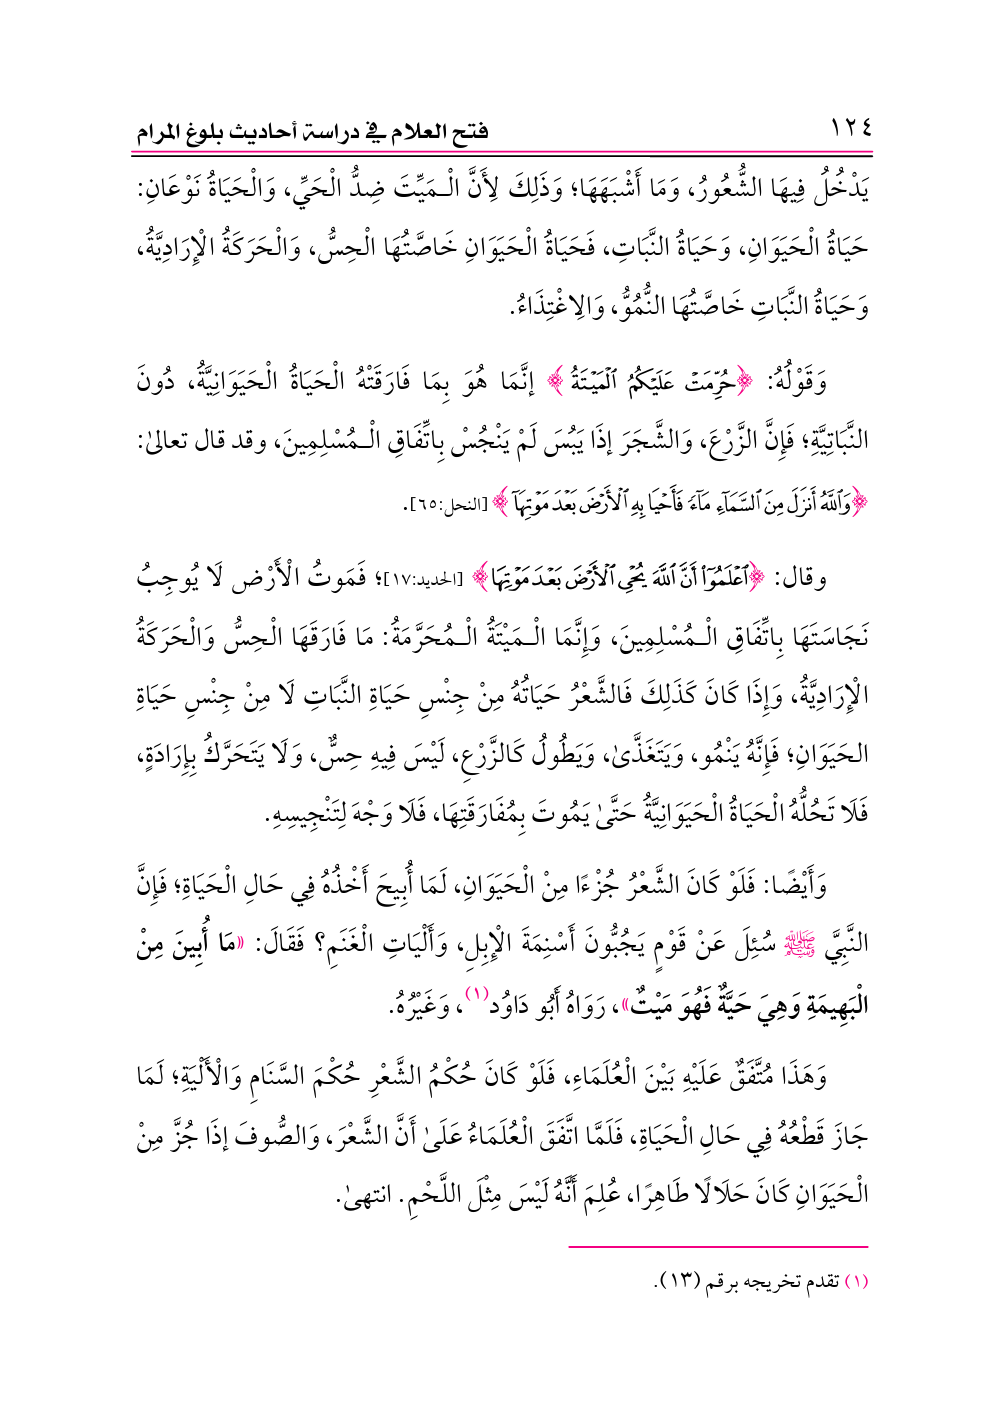 ١٢٤ فتح العلام في دراسة أحاديث بلوغ المرام
يَدْخُلُ فِيهَا الشُّعُورُ، وَمَا أَشْبَهَهَا؛ وَذَلِكَ لِأَنَّ الْـمَيِّتَ ضِدُّ الْحَيِّ، وَالْحَيَاةُ نَوْعَانِ:
حَيَاةُ الْحَيَوَانِ، وَحَيَاةُ النَّبَاتِ، فَحَيَاةُ الْحَيَوَانِ خَاصَّتُهَا الْحِسُّ، وَالْحَرَكَةُ الْإِرَادِيَّةُ،
وَحَيَاةُ النَّبَاتِ خَاصَّتُهَا النُّمُوُّ، وَالِاغْتِذَاءُ.
وَقَوْلُهُ: ﴿حُرِّمَتْ عَلَيْكُمُ ٱلْمَيْتَةُ﴾ إِنَّمَا هُوَ بِمَا فَارَقَتْهُ الْحَيَاةُ الْحَيَوَانِيَّةُ، دُونَ
النَّبَاتِيَّةِ؛ فَإِنَّ الزَّرْعَ، وَالشَّجَرَ إِذَا يَبُسَ لَمْ يَنْجُسْ بِاتِّفَاقِ الْـمُسْلِمِينَ، وقد قال تعالىٰ:
﴿وَٱللَّهُ أَنزَلَ مِنَ ٱلسَّمَآءِ مَآءً فَأَحْيَا بِهِ ٱلْأَرْضَ بَعْدَ مَوْتِهَآ﴾ [النحل:٦٥].
وقال: ﴿ٱعْلَمُوٓا۟ أَنَّ ٱللَّهَ يُحْىِ ٱلْأَرْضَ بَعْدَ مَوْتِهَا﴾ [الحديد:١٧]؛ فَمَوتُ الْأَرْضِ لَا يُوجِبُ
نَجَاسَتَهَا بِاتِّفَاقِ الْـمُسْلِمِينَ، وَإِنَّمَا الْـمَيْتَةُ الْـمُحَرَّمَةُ: مَا فَارَقَهَا الْحِسُّ وَالْحَرَكَةُ
الْإِرَادِيَّةُ، وَإِذَا كَانَ كَذَلِكَ فَالشَّعْرُ حَيَاتُهُ مِنْ جِنْسِ حَيَاةِ النَّبَاتِ لَا مِنْ جِنْسِ حَيَاةِ
الحَيَوَانِ؛ فَإِنَّهُ يَنْمُو، وَيَتَغَذَّىٰ، وَيَطُولُ كَالزَّرْعِ، لَيْسَ فِيهِ حِسٌّ، وَلَا يَتَحَرَّكُ بِإِرَادَةٍ،
فَلَا تَحُلُّهُ الْحَيَاةُ الْحَيَوَانِيَّةُ حَتَّىٰ يَمُوتَ بِمُفَارَقَتِهَا، فَلَا وَجْهَ لِتَنْجِيسِهِ.
وَأَيْضًا: فَلَوْ كَانَ الشَّعْرُ جُزْءًا مِنْ الْحَيَوَانِ، لَمَا أُبِيحَ أَخْذُهُ فِي حَالِ الْحَيَاةِ؛ فَإِنَّ
النَّبِيَّ ﷺ سُئِلَ عَنْ قَوْمٍ يَجُبُّونَ أَسْنِمَةَ الْإِبِلِ، وَأَلْيَاتِ الْغَنَمِ؟ فَقَالَ: «مَا أُبِينَ مِنْ
الْبَهِيمَةِ وَهِيَ حَيَّةٌ فَهُوَ مَيْتٌ»، رَوَاهُ أَبُو دَاوُد(١)، وَغَيْرُهُ.
وَهَذَا مُتَّفَقٌ عَلَيْهِ بَيْنَ الْعُلَمَاءِ، فَلَوْ كَانَ حُكْمُ الشَّعْرِ حُكْمَ السَّنَامِ وَالْأَلْيَةِ؛ لَمَا
جَازَ قَطْعُهُ فِي حَالِ الْحَيَاةِ، فَلَمَّا اتَّفَقَ الْعُلَمَاءُ عَلَىٰ أَنَّ الشَّعْرَ، وَالصُّوفَ إِذَا جُزَّ مِنْ
الْحَيَوَانِ كَانَ حَلَالًا طَاهِرًا، عُلِمَ أَنَّهُ لَيْسَ مِثْلَ اللَّحْمِ. انتهىٰ.
(١) تقدم تخريجه برقم (١٣).